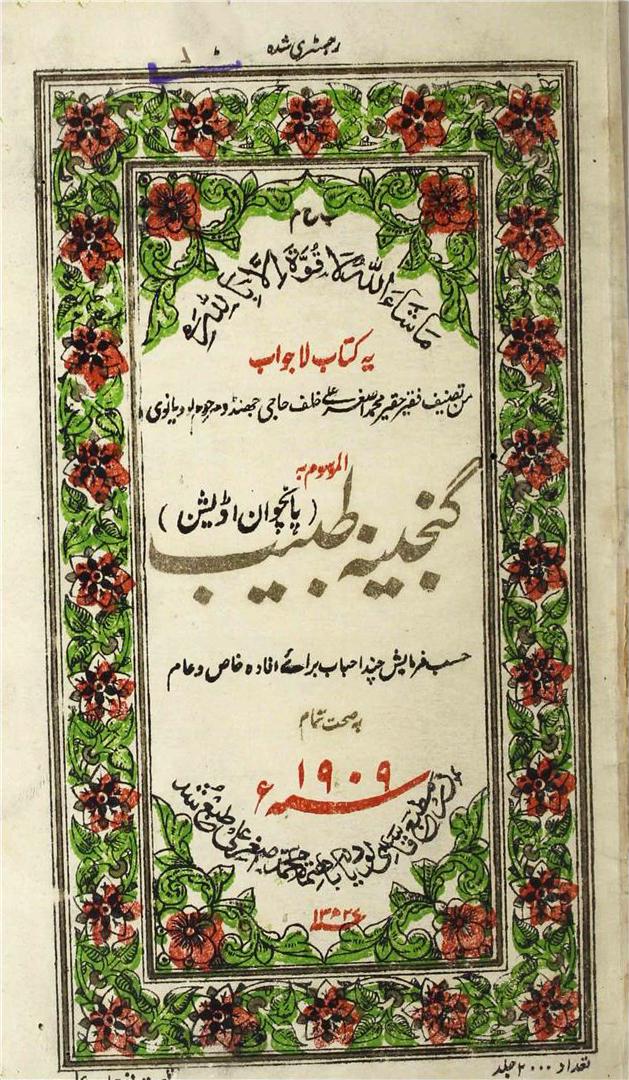 رجسٹری شدہ
مَا شَاءَ اللّٰهُ لَا قُوَّةَ اِلَّا بِاللّٰهِ
یہ کتاب لا جواب
من تصنیف فقیر حقیر محمد اصغر علی خلف حاجی جھنڈو مرحوم لودیانوی
الموسوم بہ
(پانچوان اڈیشن)
گنجینہ طبیب
حسب فرمایش چند احباب برائے افادہ خاص و عام
بہ صحت تمام
سنہ ۱۹۰۹ء
مطبع لودیانہ باہتمام محمد اصغر علی طبع شد
تعداد ۲۰۰۰ جلد